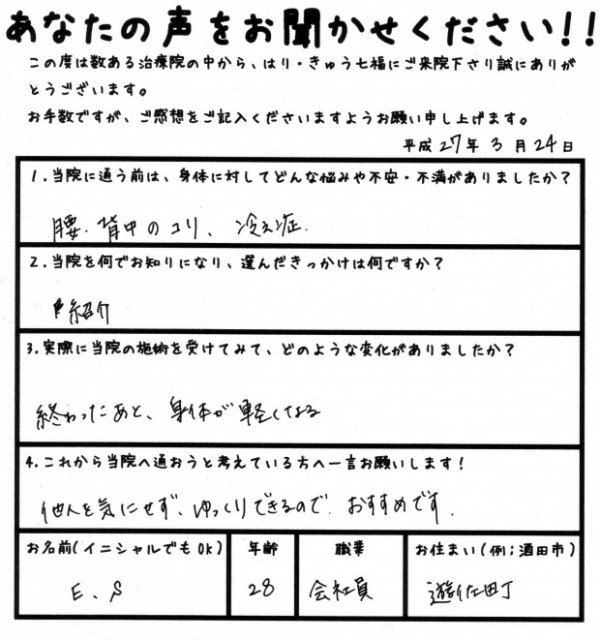 あなたの声をお聞かせください!!
この度は数ある治療院の中から、はり・きゅう七福にご来院下さり誠にありが
とうございます。
お手数ですが、ご感想をご記入くださいますようお願い申し上げます。
平成27年3月24日
1.当院に通う前は、身体に対してどんな悩みや不安・不満がありましたか？
腰、背中のコリ、冷え症.
2.当院を何でお知りになり、選んだきっかけは何ですか？
紹介
3.実際に当院の施術を受けてみて、どのような変化がありましたか？
終わったあと、身体が軽くなる
4.これから当院へ通おうと考えている方へ一言お願いします！
他人を気にせず、ゆっくりできるので、おすすめです.
お名前(イニシャルでもOK) 年齢 職業 お住まい(例；酒田市)
E.S 28 会社員 遊佐町